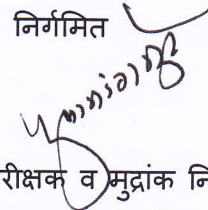 निर्गमित
रीक्षक व मुद्रांक नि